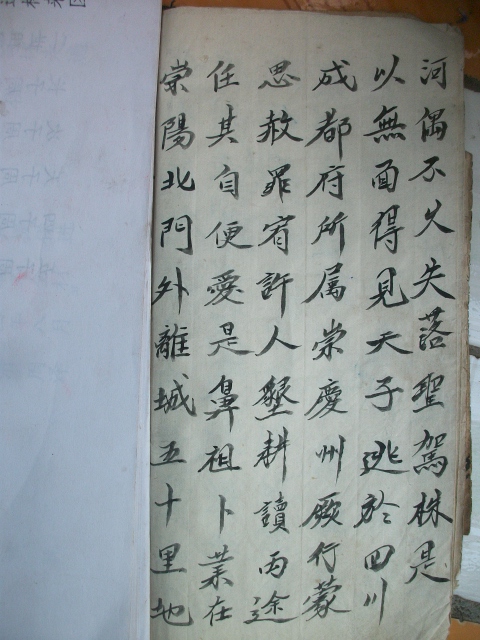 河偶不久失落聖駕株是
以無面得見天子逃於四川
成都府所属崇慶州厥行蒙
思赦罪宥許人墾耕讀丙途
任其自便愛是鼻祖卜業在
崇陽北門外離城五十里地